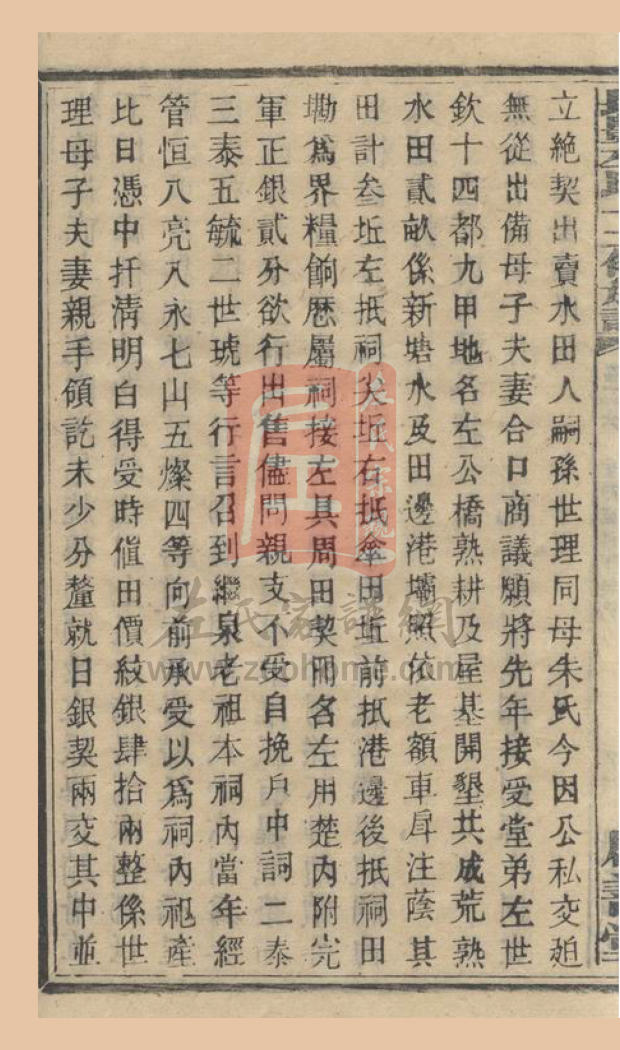 立絶契出賣水田人嗣孫世理同母朱氏今因公私交廹
無從出備母子夫妻合口商議願將先年接受堂弟左世
欽十四都九甲地名左公橋熟耕及屋基開墾共成荒熟
水田貳畝係新塘水及田邊港壩照依老額車戽注蔭其
田計叁坵左抵祠尖坵右抵傘田坵前抵港邊後抵祠田
墈爲界糧餉歴屬祠接左具周田契冊名左用楚内附完
軍正銀貳分欲行出售儘問親支不受自挽戶中詞二泰
三泰五毓二世琥等行言召到繼泉老祖本祠内當年經
管恒八亮八永七山五燦四等向前承受以爲祠内祀産
比日憑中扦清明白得受時値田價紋銀肆拾兩整係世
理母子夫妻親手領訖未少分釐就日銀契兩交其中並
左氏家譜網
www.zuohome.com